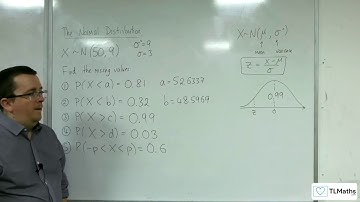 The Normal Distribution
X~N(50,9) σ²=9
σ=3
Find the missing values
① P(X<a)=0.81 a=52.6337
② P(X<b)=0.32 b=48.5969
③ P(X>c)=0.99
④ P(X>d)=0.03
⑤ P(-p<X<p)=0.6
X~N(μ, σ²)
mean variance
z = x-μ
σ
0.99
z 0
TLMaths